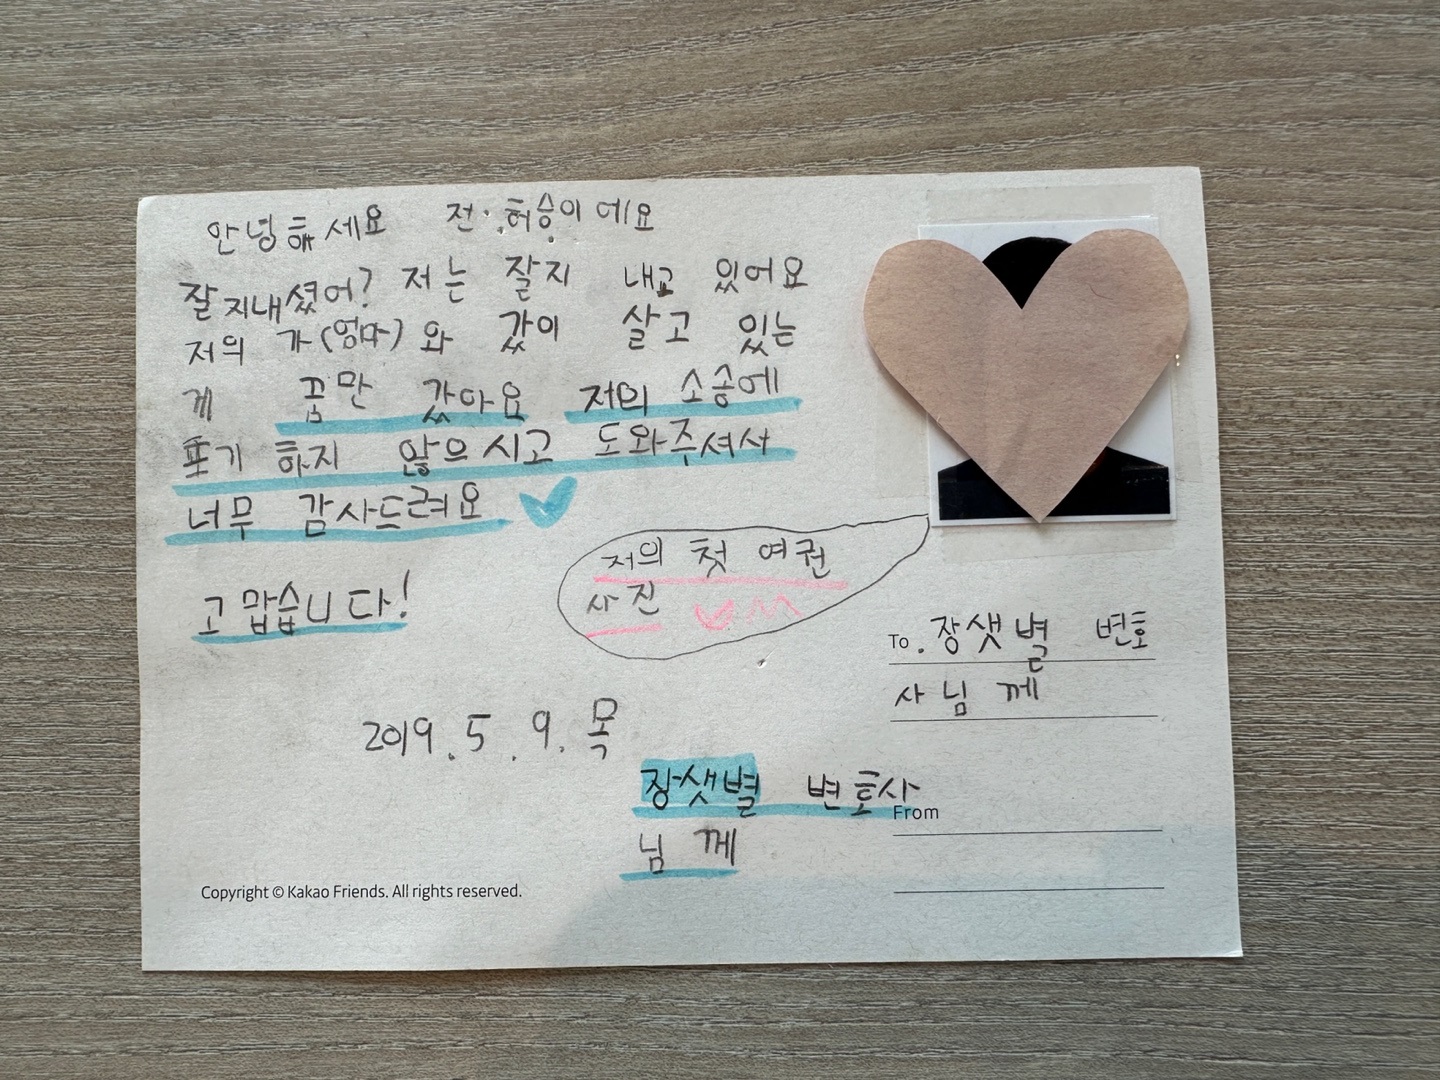 안녕하세요 전. 허승이에요
잘 지내셨어? 저는 잘지 내고 있어요
저의 가(엄마)와 갔이 살고 있는
게 꿈만 갔아요 저의 소송에
포기 하지 않으시고 도와주셔서
너무 감사드려요
고맙습니다!
저의 첫 여권
사진
To. 장샛별 변호
사님 께
2019.5.9.목
장샛별 변호사
님 께
From
Copyright © Kakao Friends. All rights reserved.